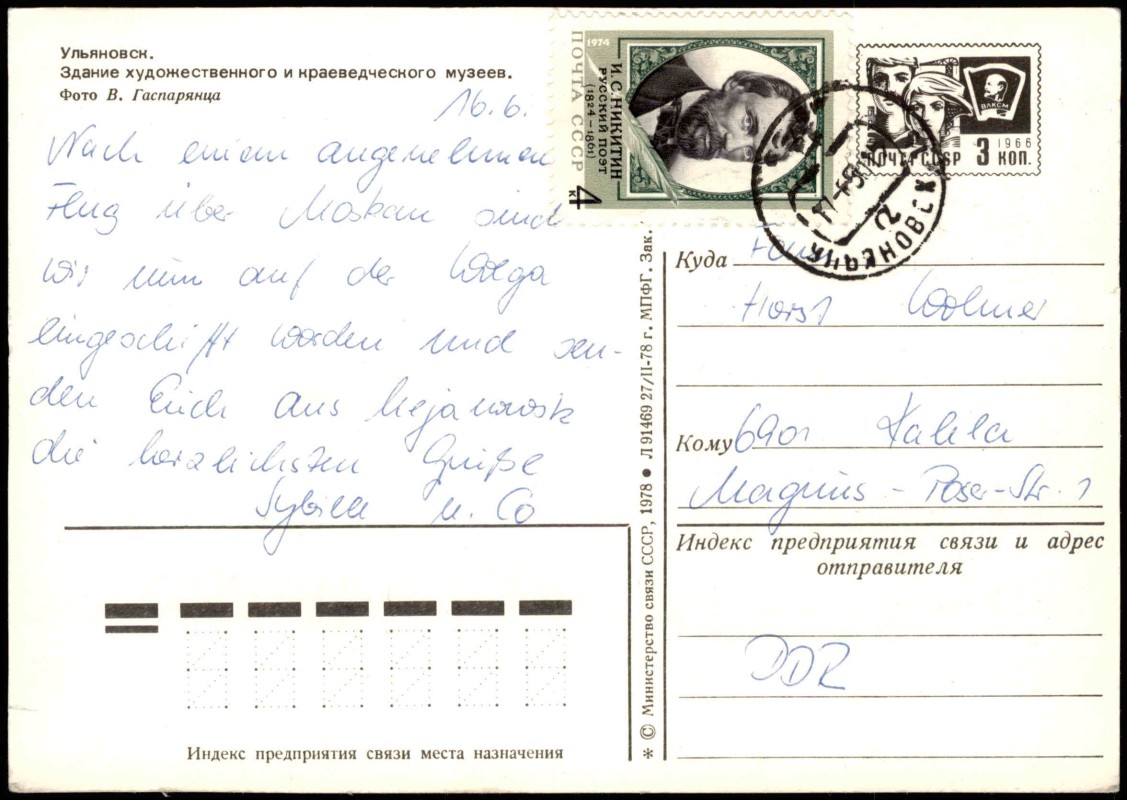 Ульяновск.
Здание художественного и краеведческого музеев.
Фото В. Гаспарянца
16.6.
Nach einem angenehmen
Flug über Moskau sind
wir nun auf der Wolga
eingeschifft worden und sen-
den Euch aus Uljanowsk
die herzlichsten Grüße
Sybille u. Co
1974
ПОЧТА СССР
И.С.НИКИТИН
РУССКИЙ ПОЭТ
(1824–1861)
4 к
ВЛКСМ
1966
ПОЧТА СССР 3 КОП.
УЛЬЯНОВСК
Куда Fam
Horst
Кому 6901 Kahla
Magnus-Poser-Str. 1
Индекс предприятия связи и адрес
отправителя
DDR
* © Министерство связи СССР, 1978 ● Л 91469 27/II-78 г. МПФГ. Зак.
Индекс предприятия связи места назначения